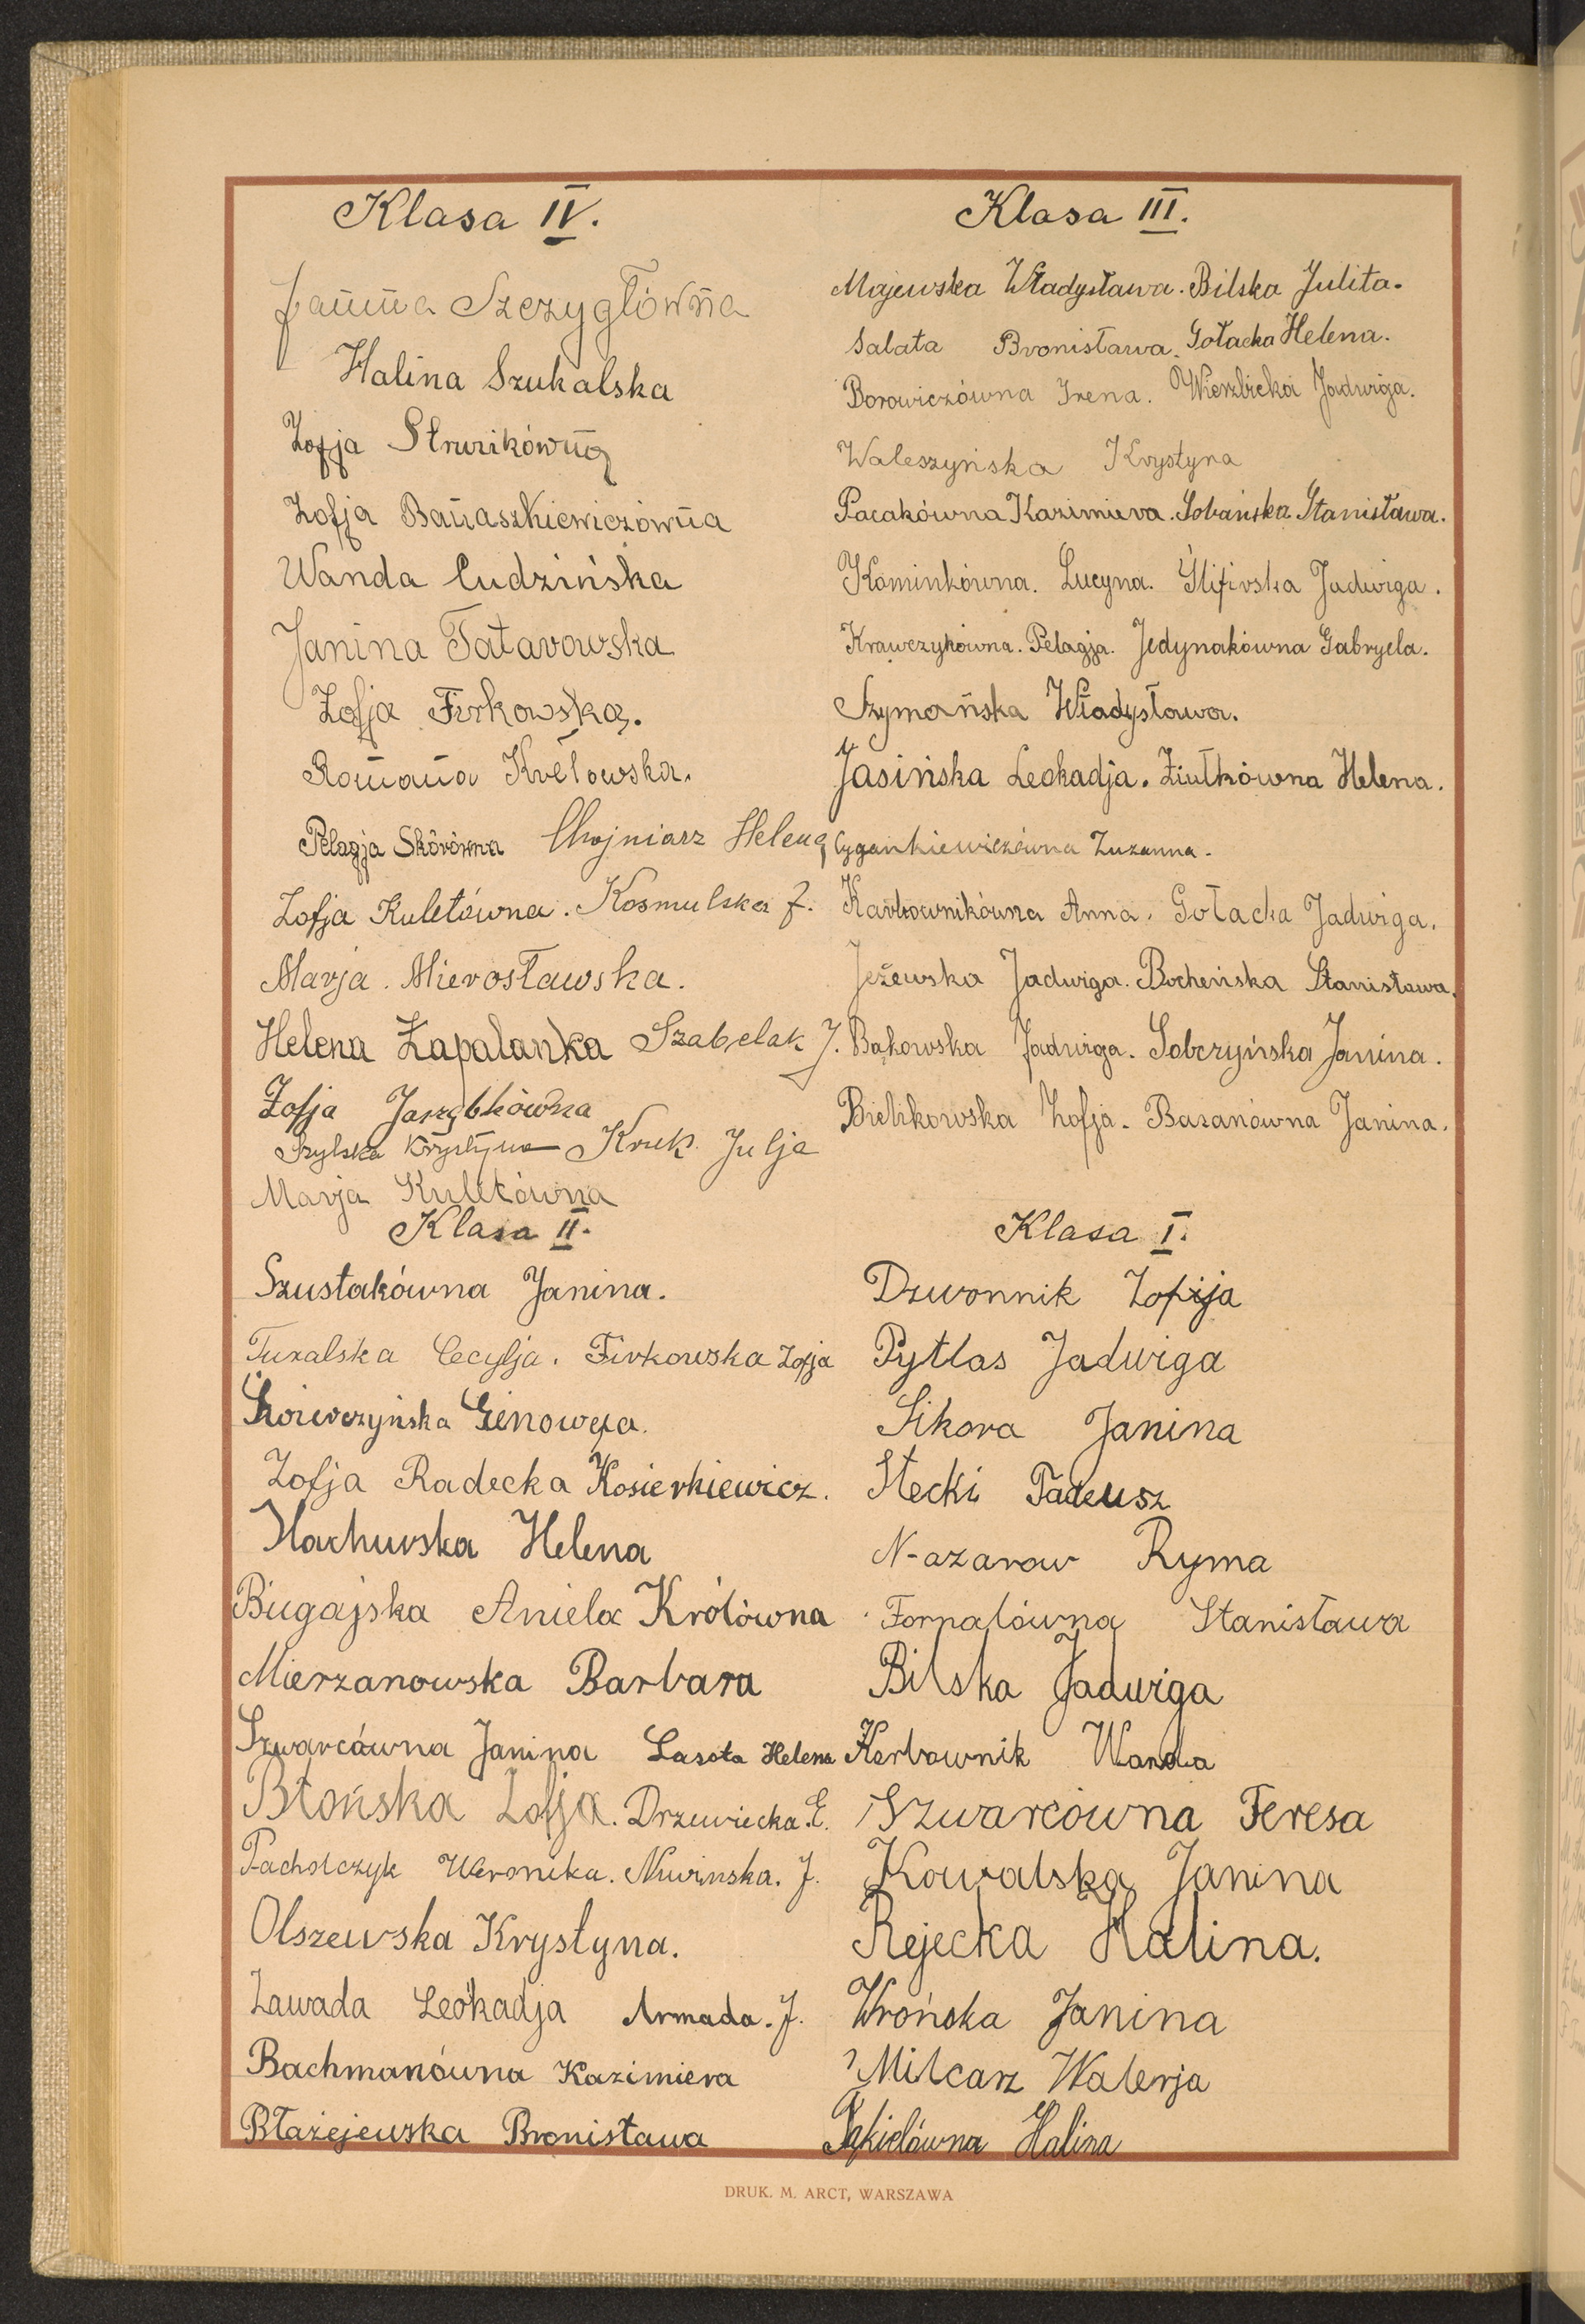 Klasa IV.
Janina Szczygłówna
Halina Szukalska
Zofja Struzikówna
Zofja Banaszkiewiczówna
Wanda Cudzińska
Janina Tatarowska
Zofja Firkowska.
Romana Kretowska.
Pelagja Skórówna Chojniarz Helena
Zofja Kuletówna. Kosmulska J.
Marja. Mierosławska.
Helena Zapalanka Szabelak J.
Zofja Jarząbkówna
Szylska Krystyna Kruk Julja
Marja Kuletówna
Klasa III.
Majewska Władysława. Bilska Julita.
Salata Bronisława. Gołacka Helena.
Borowiczówna Irena. Wierzbicka Jadwiga.
Waleszyńska Krystyna
Pacakówna Kazimiera. Sobańska Stanisława.
Kominkówna. Lucyna. Ślifirska Jadwiga.
Krawczykówna. Pelagja. Jedynakówna Gabryela.
Szymańska Władysława.
Jasińska Leokadja. Ziułkówna Helena.
Cygankiewiczówna Zuzanna.
Karbownikówna Anna. Gołacka Jadwiga.
Jeżewska Jadwiga. Bocheńska Stanisława.
Bąkowska Jadwiga. Sobczyńska Janina.
Bielikowska Zofja. Bazanówna Janina.
Klasa II.
Szustakówna Janina.
Tuzalska Cecylja. Firkowska Zofja
Genowefa.
Zofja Radecka Kosierkiewicz.
Stachurska Helena
Bugajska Aniela Królówna
Mierzanowska Barbara
Szwarcówna Janina Lasota Helena
Błońska Zofja. Drzewiecka E.
Pacholczyk Weronika. Niwinska. J.
Olszewska Krystyna.
Zawada Leokadja Armada. J.
Bachmanówna Kazimiera
Błażejewska Bronisława
Klasa I.
Dzwonnik Zofija
Pytlas Jadwiga
Sikora Janina
Stecki Tadeusz
Nazarow Ryma
Fornalówna Stanisława
Bilska Jadwiga
Karbownik Wanda
Szwarcówna Teresa
Kowalska Janina
Rejecka Halina.
Wrońska Janina
Milcarz Walerja
Jękielówna Halina
DRUK. M. ARCT, WARSZAWA